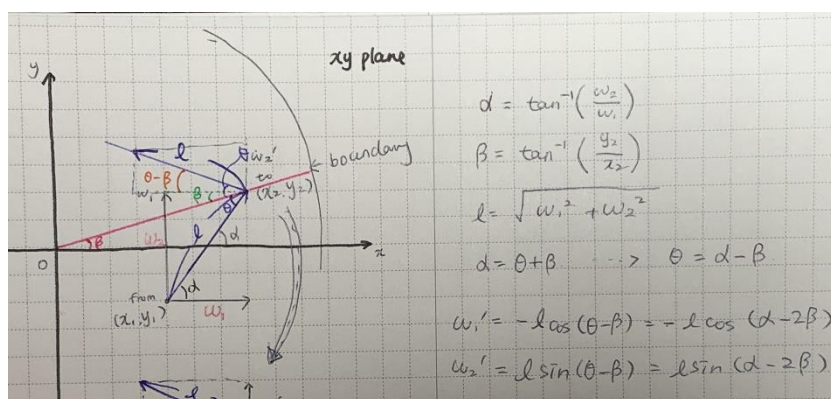 xy plane
y
boundary
l
θ
w₂'
θ-β
w₁'
β
to
(x₂, y₂)
θ
β
w₂
l
α
x
O
from
(x₁, y₁)
α
w₁
α = tan⁻¹(w₂/w₁)
β = tan⁻¹(y₂/x₂)
l = √w₁² + w₂²
α = θ+β ⋯> θ = α-β
w₁' = -l cos(θ-β) = -l cos (α-2β)
w₂' = l sin(θ-β) = l sin (α-2β)